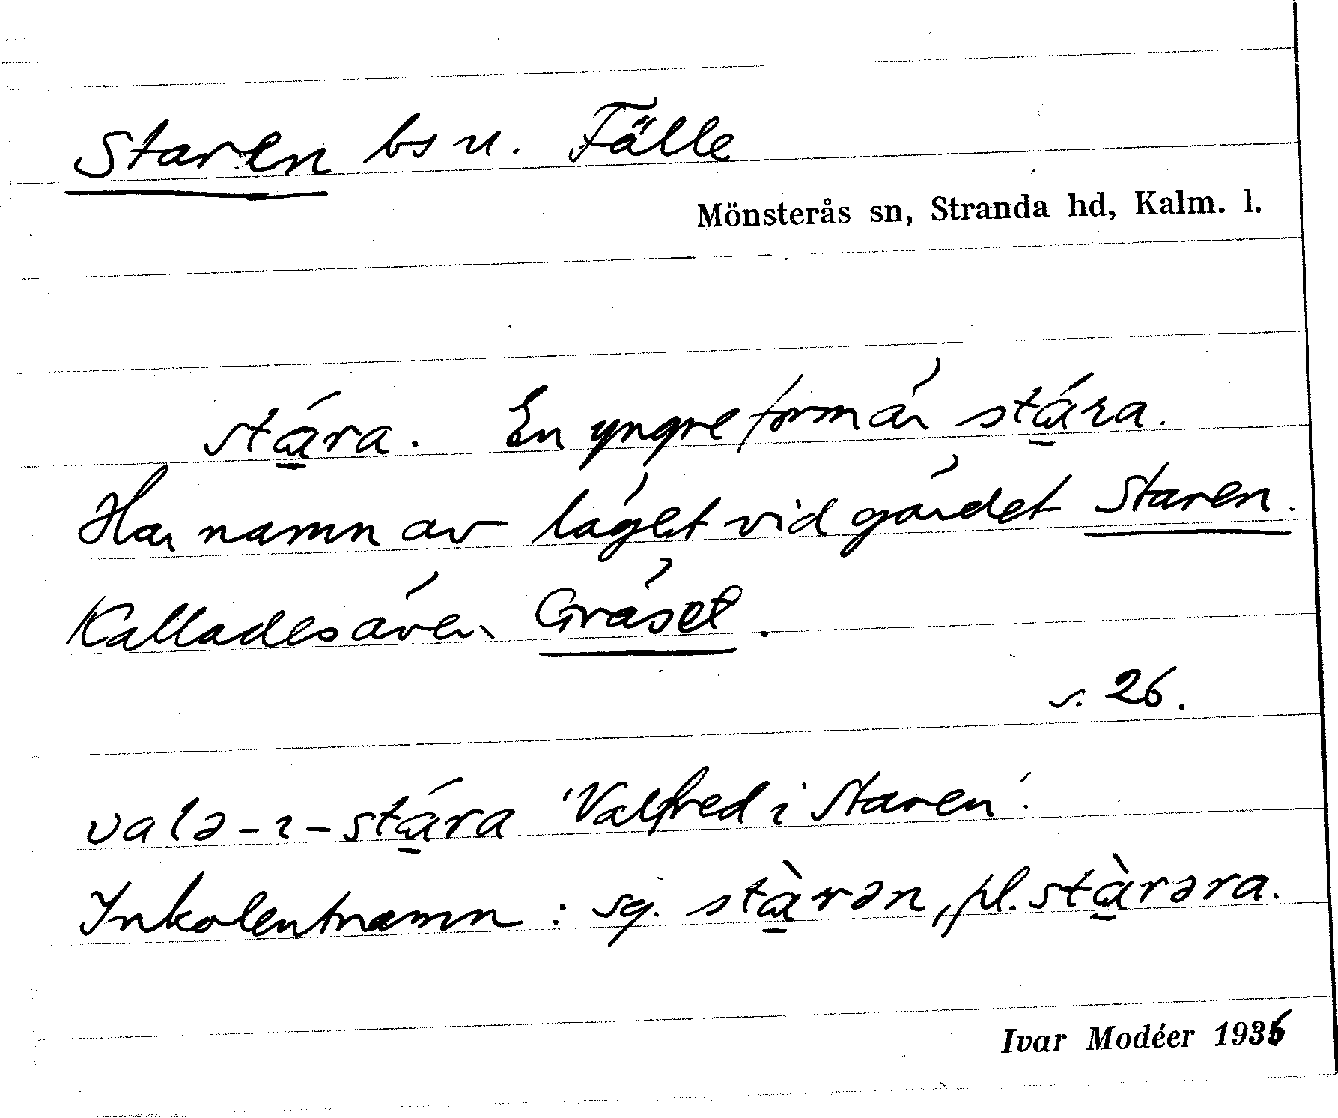 Staren bs u. Fälle
Mönsterås sn, Stranda hd, Kalm. l.
stá̱ra. En yngre form är stá̱ra.
Har namn av läget vid gärdet Staren.
Kallades även Gräset.
s. 26.
valə-ɩ-stá̱ra 'Valfred i Staren'.
Inkolentnamn: sg. stà̱rən, pl. stà̱rəra.
Ivar Modéer 1936